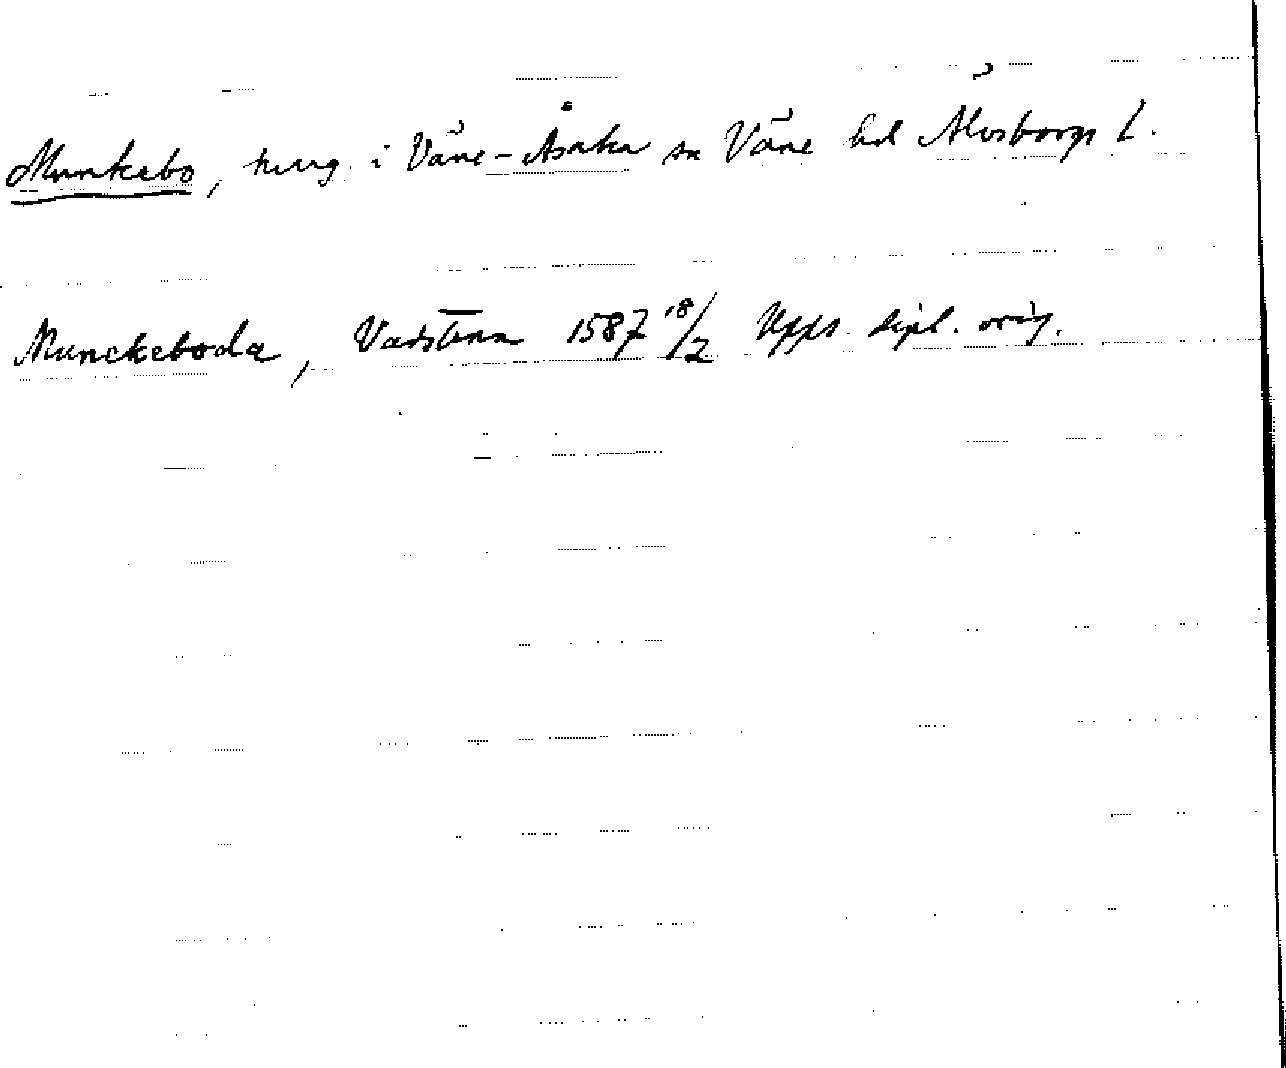 Munkebo, herrg. i Väne-Åsaka sn Väne hd Älvsborgs l.
Munckeboda, Vadstena 1587 18/2 Upps. dipl. orig.